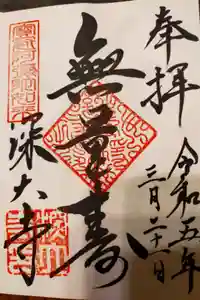 奉拝
令和五年
三月二十一日
無量寿
深大寺